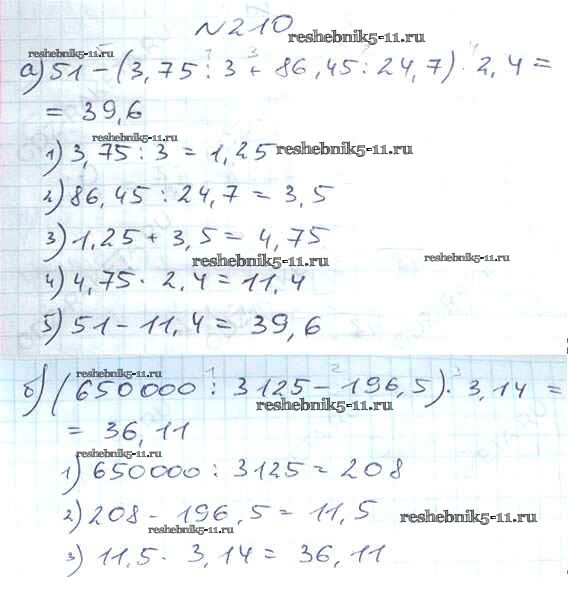 №210
reshebnik5-11.ru
reshebnik5-11.ru
а) 51 - (3,75 : 3 + 86,45 : 24,7) · 2,4 =
= 39,6
reshebnik5-11.ru
1) 3,75 : 3 = 1,25 reshebnik5-11.ru
2) 86,45 : 24,7 = 3,5
3) 1,25 + 3,5 = 4,75
reshebnik5-11.ru
reshebnik5-11.ru
4) 4,75 · 2,4 = 11,4
5) 51 - 11,4 = 39,6
reshebnik5-11.ru
1 2 3
б) (650000 : 3125 - 196,5) · 3,14 =
reshebnik5-11.ru
= 36,11
reshebnik5-11.ru
1) 650000 : 3125 = 208
2) 208 - 196,5 = 11,5
reshebnik5-11.ru
reshebnik5-11.ru
3) 11,5 · 3,14 = 36,11